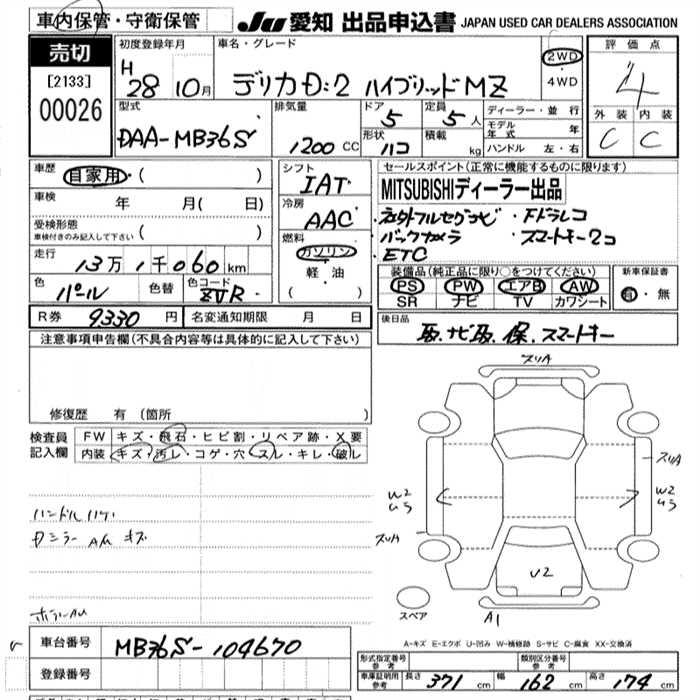 車内保管・守衛保管
JU 愛知 出品申込書 JAPAN USED CAR DEALERS ASSOCIATION
売切
[2133]
00026
初度登録年月
H
28 10月
車名・グレード
デリカD:2 ハイブリッドMZ
2WD
4WD
評価点
4
外装 内装
C C
型式
DAA-MB36S
排気量
1200 CC
ドア
5
定員
5人
形状
ハコ
積載
kg
ディーラー・並行
モデル年式 年
ハンドル 左・右
車歴
自家用・( )
車検 年 月( 日)
受検形態
車検付きのみ記入して下さい ( )
走行
13万1千060km
色
パール
色替
色コード
ZVR
シフト
IAT
冷房
AAC
燃料
ガソリン
軽・油
( )
セールスポイント(正常に機能するものに限ります)
MITSUBISHIディーラー出品
・社外フルセグナビ ・Fドラレコ
・バックカメラ ・スマートキー2コ
・ETC
装備品(純正品に限り○をつけてください)
PS PW エアB AW
SR ナビ TV カワシート
新車保証書
有・無
R券 9330円
名変通知期限 月 日
後日品
取、ナビ取、保、スマートキー
注意事項申告欄(不具合内容等は具体的に記入して下さい)
修復歴 有(箇所 )
検査員記入欄
FW キズ・飛石・ヒビ割・リペア跡・X要
内装 キズ・汚レ・コゲ・穴・スレ・キレ・破レ
ハンドルハゲ
Dミラー AU キズ
スリA
スリA
W2
W2
スリA
U2
A1
スペア
A-キズ E-エクボ U-凹み W-補修跡 S-サビ C-腐食 XX-交換済
車台番号 MB36S-104670
登録番号
形式指定番号
参考
類別区分番号
参考
車庫証明用
参考
長さ 371 cm 幅 162 cm 高さ 174 cm